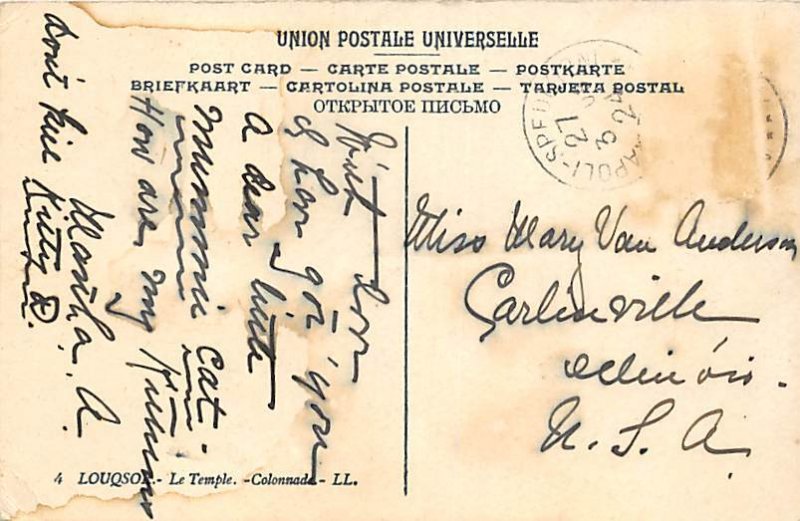 UNION POSTALE UNIVERSELLE
POST CARD — CARTE POSTALE — POSTKARTE
BRIEFKAART — CARTOLINA POSTALE — TARJETA POSTAL
ОТКРЫТОЕ ПИСЬМО
NAPOLI
27
3
24
With love
I have got you
a dear little
Mummie Cat.
How are my
Martha. A.
Don't kiss Kitty
Miss Mary Van Anderson
Carlinville
Illinois.
U. S. A.
4 LOUQSOR.- Le Temple. -Colonnade.- LL.